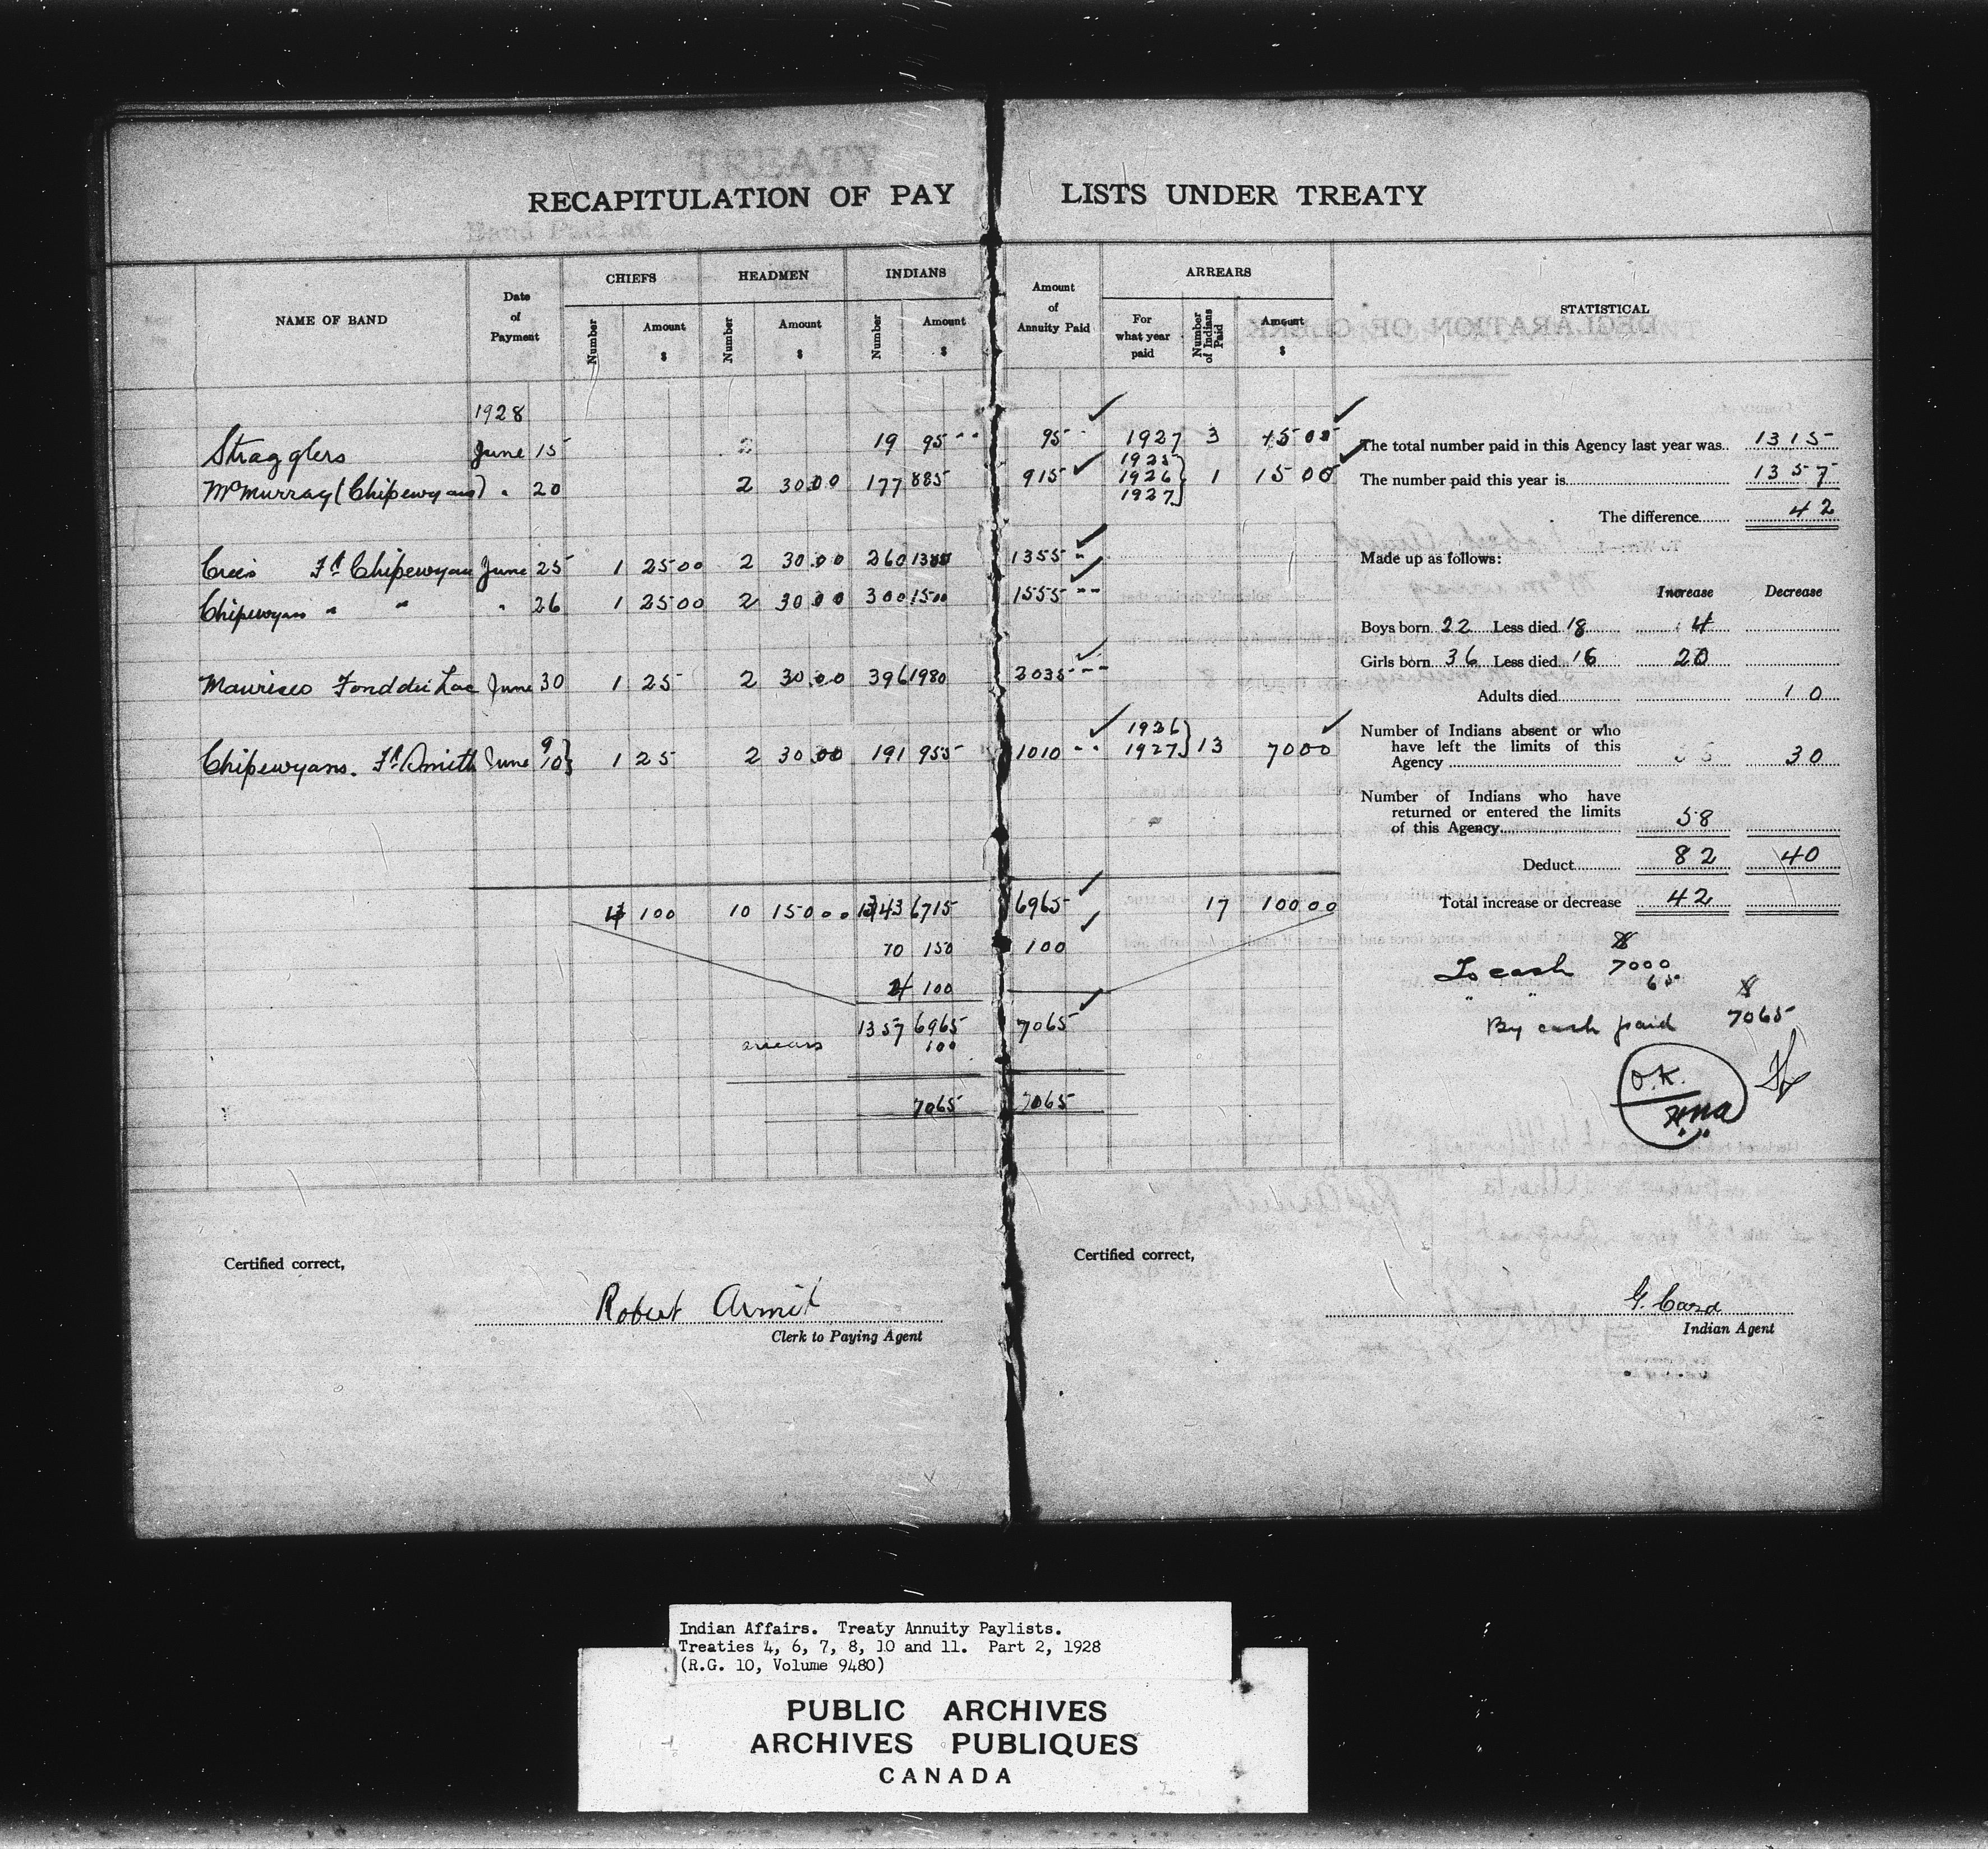 RECAPITULATION OF PAY LISTS UNDER TREATY
NAME OF BAND
Date of Payment
CHIEFS
HEADMEN
INDIANS
Amount of Annuity Paid
ARREARS
STATISTICAL
Number Amount $ Number Amount $ Number Amount $
For what year paid Number of Indians Paid Amount $
1928
Stragglers June 15 19 95 95 1927 3 15 00
McMurray (Chipewyans) " 20 2 30.00 177 885 915 1925 1926 1927 1 15 00
Crees Ft Chipewyan June 25 1 25 00 2 30.00 260 1300 1355
Chipewyans " " " 26 1 25 00 2 30 00 300 1500 1555
Maurices Fond du Lac June 30 1 25 2 30.00 396 1980 2035
Chipewyans. Ft. Smith June 9 10 1 25 2 30 00 191 955 1010 1926 1927 13 70 00
4 100 10 150 00 1343 6715 6965 17 100 00
10 150 100
4 100
1357 6965 7065
arrears 100
7065 7065
The total number paid in this Agency last year was.. 1315
The number paid this year is 1357
The difference 42
Made up as follows:
Increase Decrease
Boys born 22 Less died 18 4
Girls born 36 Less died 16 20
Adults died 10
Number of Indians absent or who
have left the limits of this
Agency 30
Number of Indians who have
returned or entered the limits
of this Agency 58
Deduct 82 40
Total increase or decrease 42
$
To cash 7000
" " 65 $
By cash paid 7065
O.K.
Certified correct,
Robert Armit
Clerk to Paying Agent
Certified correct,
G. Card
Indian Agent
Indian Affairs. Treaty Annuity Paylists.
Treaties 4, 6, 7, 8, 10 and 11. Part 2, 1928
(R.G. 10, Volume 9480)
PUBLIC ARCHIVES
ARCHIVES PUBLIQUES
CANADA